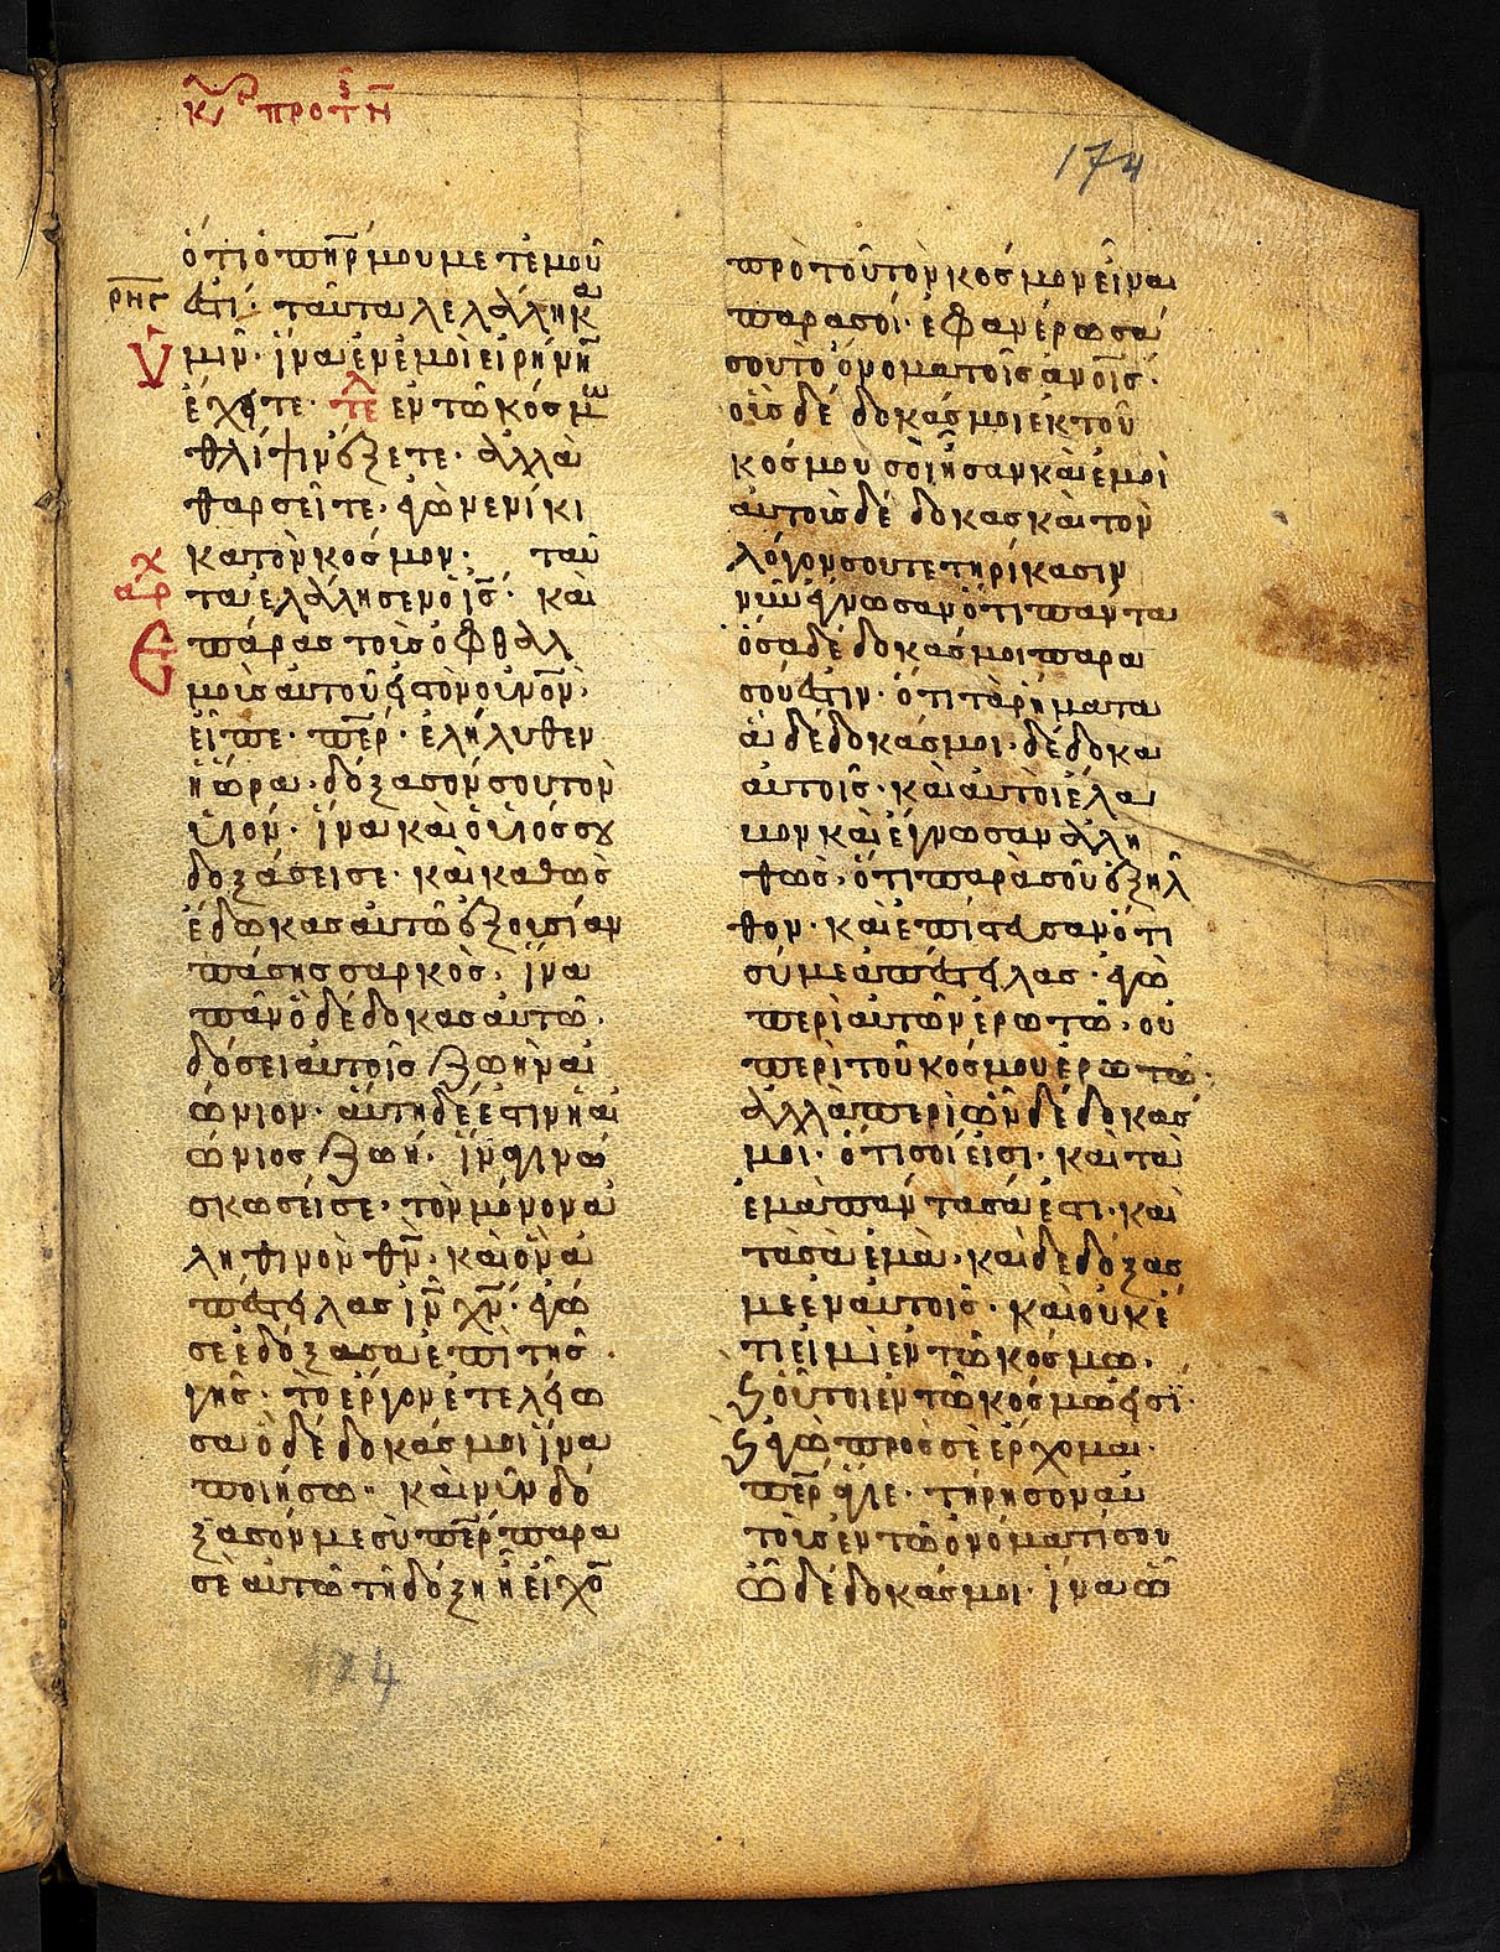 κυ προ τ ν
174
ὅτι ὁ πηρ μου μετ ἐμοῦ
ρης ἐστί· ταῦτα λελάληκα
ὑμῖν· ἵνα ἐν ἐμοὶ εἰρήνην
ἔχητε· τε ἐν τῶ κόσμω
θλίψιν ἕξετε· ἀλλὰ
θαρσεῖτε, ἐγὼ νενίκι
κα τὸν κόσμον· ταῦ
χ
αρ τα ἐλάλησεν ὁ ις· καὶ
Ε πάρας τοῖς ὀφθαλ
μοῖς αὐτοῦ εἰς τὸν οὐνον,
εἶπε· περ· ἐλήλυθεν
ἡ ὥρα, δόξασόν σου τὸν
υἱόν· ἵνα καὶ ὁ υἱός σου
δοξάσει σε· καὶ καθὼς
ἔδωκας αὐτῶ ἐξουσίαν
πάσης σαρκὸς, ἵνα
πᾶν ὃ δέδοκας αὐτῶ,
δόσει αὐτοῖς ζωὴν αἰ
ώνιον· αὕτη δέ ἐστιν ἡ αἰ
ώνιος ζωή· ἵνα γινώ
σκωσεί σε, τὸν μόνον ἀ
ληθινὸν θν, καὶ ὃν ἀ
πέστειλας ιν χν· ἐγώ
σε ἐδόξασα ἐπὶ τῆς
γῆς· τὸ ἔργον ἐτελείω
σα ὃ δέδοκάς μοι ἵνα
ποιήσω· καὶ νῦν δό
ξασόν με σὺ περ παρὰ
σὲ αὐτῶ τῆ δόξη ἧ εἶχον
πρὸ τοῦ τὸν κόσμον εἶναι
παρὰ σοί· ἐφανέρωσά
σου τὸ ὄνομα τοῖς ἀνοις·
οἷς δέδοκάς μοι ἐκ τοῦ
κόσμου σοὶ ἦσαν καὶ ἐμοὶ
αὐτοῖς δέδοκας καὶ τὸν
λόγον σου τετηρίκασιν
νῦν ἔγνωσαν ὅτι πάντα
ὅσα δέδοκάς μοι παρὰ
σου ἐστίν· ὅτι τὰ ρήματα
ἃ δέδοκάς μοι· δέδοκα
αὐτοῖς· καὶ αὐτοὶ ἔλα
μον καὶ ἔγνωσαν ἀλη
θῶς, ὅτι παρὰ σοῦ ἐξῆλ
θον· καὶ ἐπίστευσαν ὅτι
σύ με ἀπέστειλας· ἐγὼ
περὶ αὐτῶν ἐρωτῶ, οὐ
περὶ τοῦ κόσμου ἐρωτῶ·
ἀλλὰ περὶ ὧν δέδοκάς
μοι· ὅτι σοί εἰσι· καὶ τὰ
ἐμὰ πάντα σά ἐστι· καὶ
τὰ σὰ ἐμὰ, καὶ δεδόξασ
με ἐν αὐτοῖς· καὶ οὐκέ
τι εἰμὶ ἐν τῶ κόσμω.
ϛ οὗτοι ἐν τῶ κόσμω εἰσί·
ϛ ἐγὼ πρὸς σὲ ἔρχομαι·
περ ἅγιε· τήρησον αὐ
τοῖς ἐν τῶ ὀνόματί σου
ὧ δέδοκάς μοι· ἵνα ὦ
174